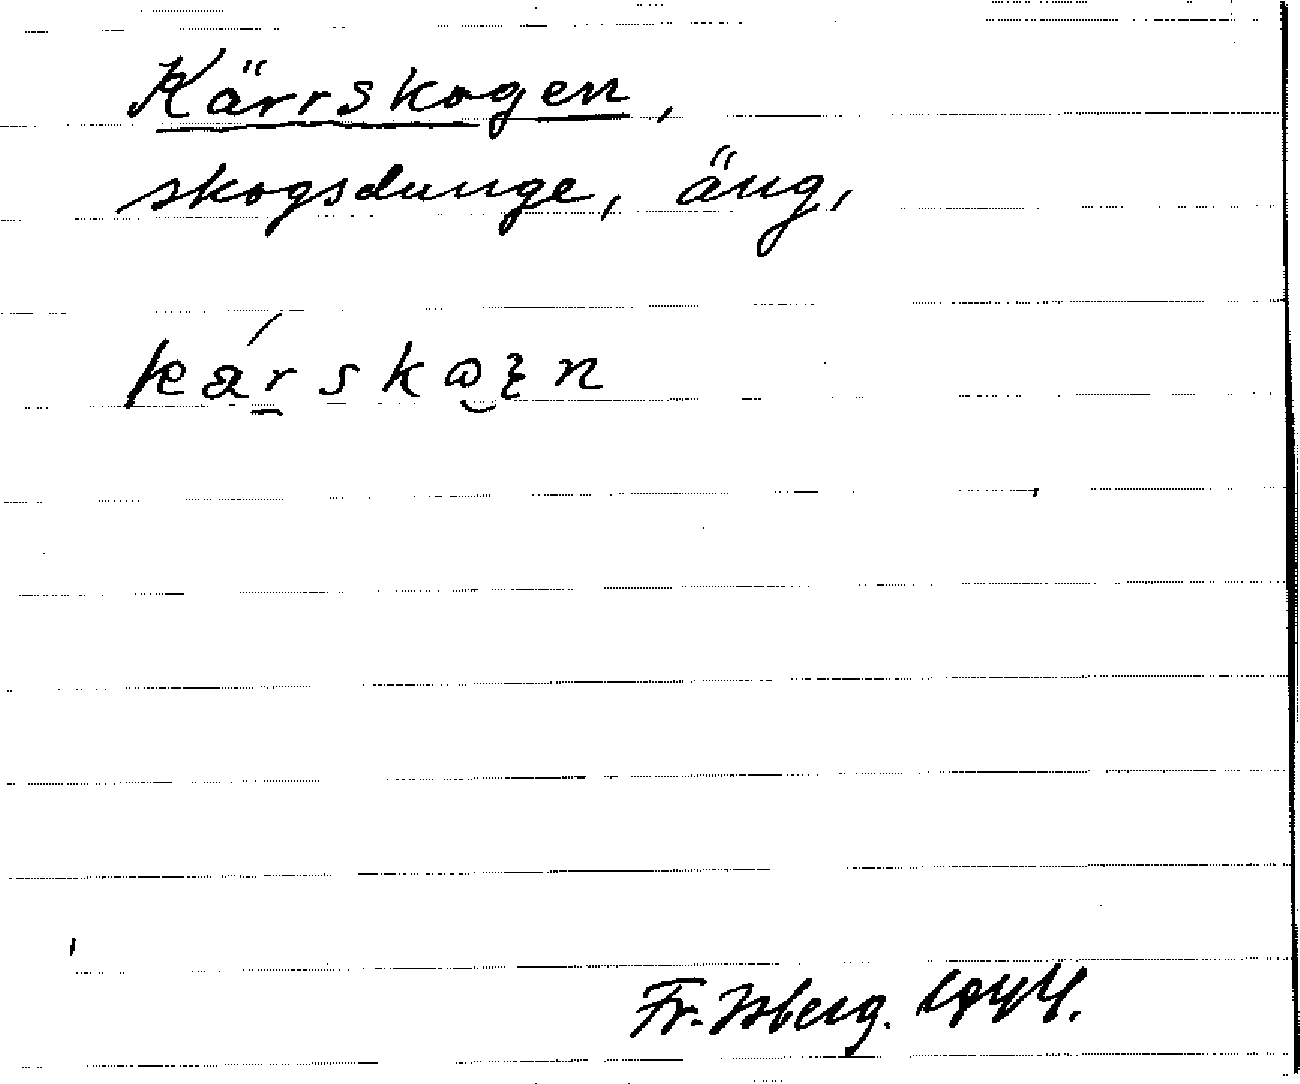 Kärrskogen,
skogsdunge, äng,
Fr. Isberg. 1944.